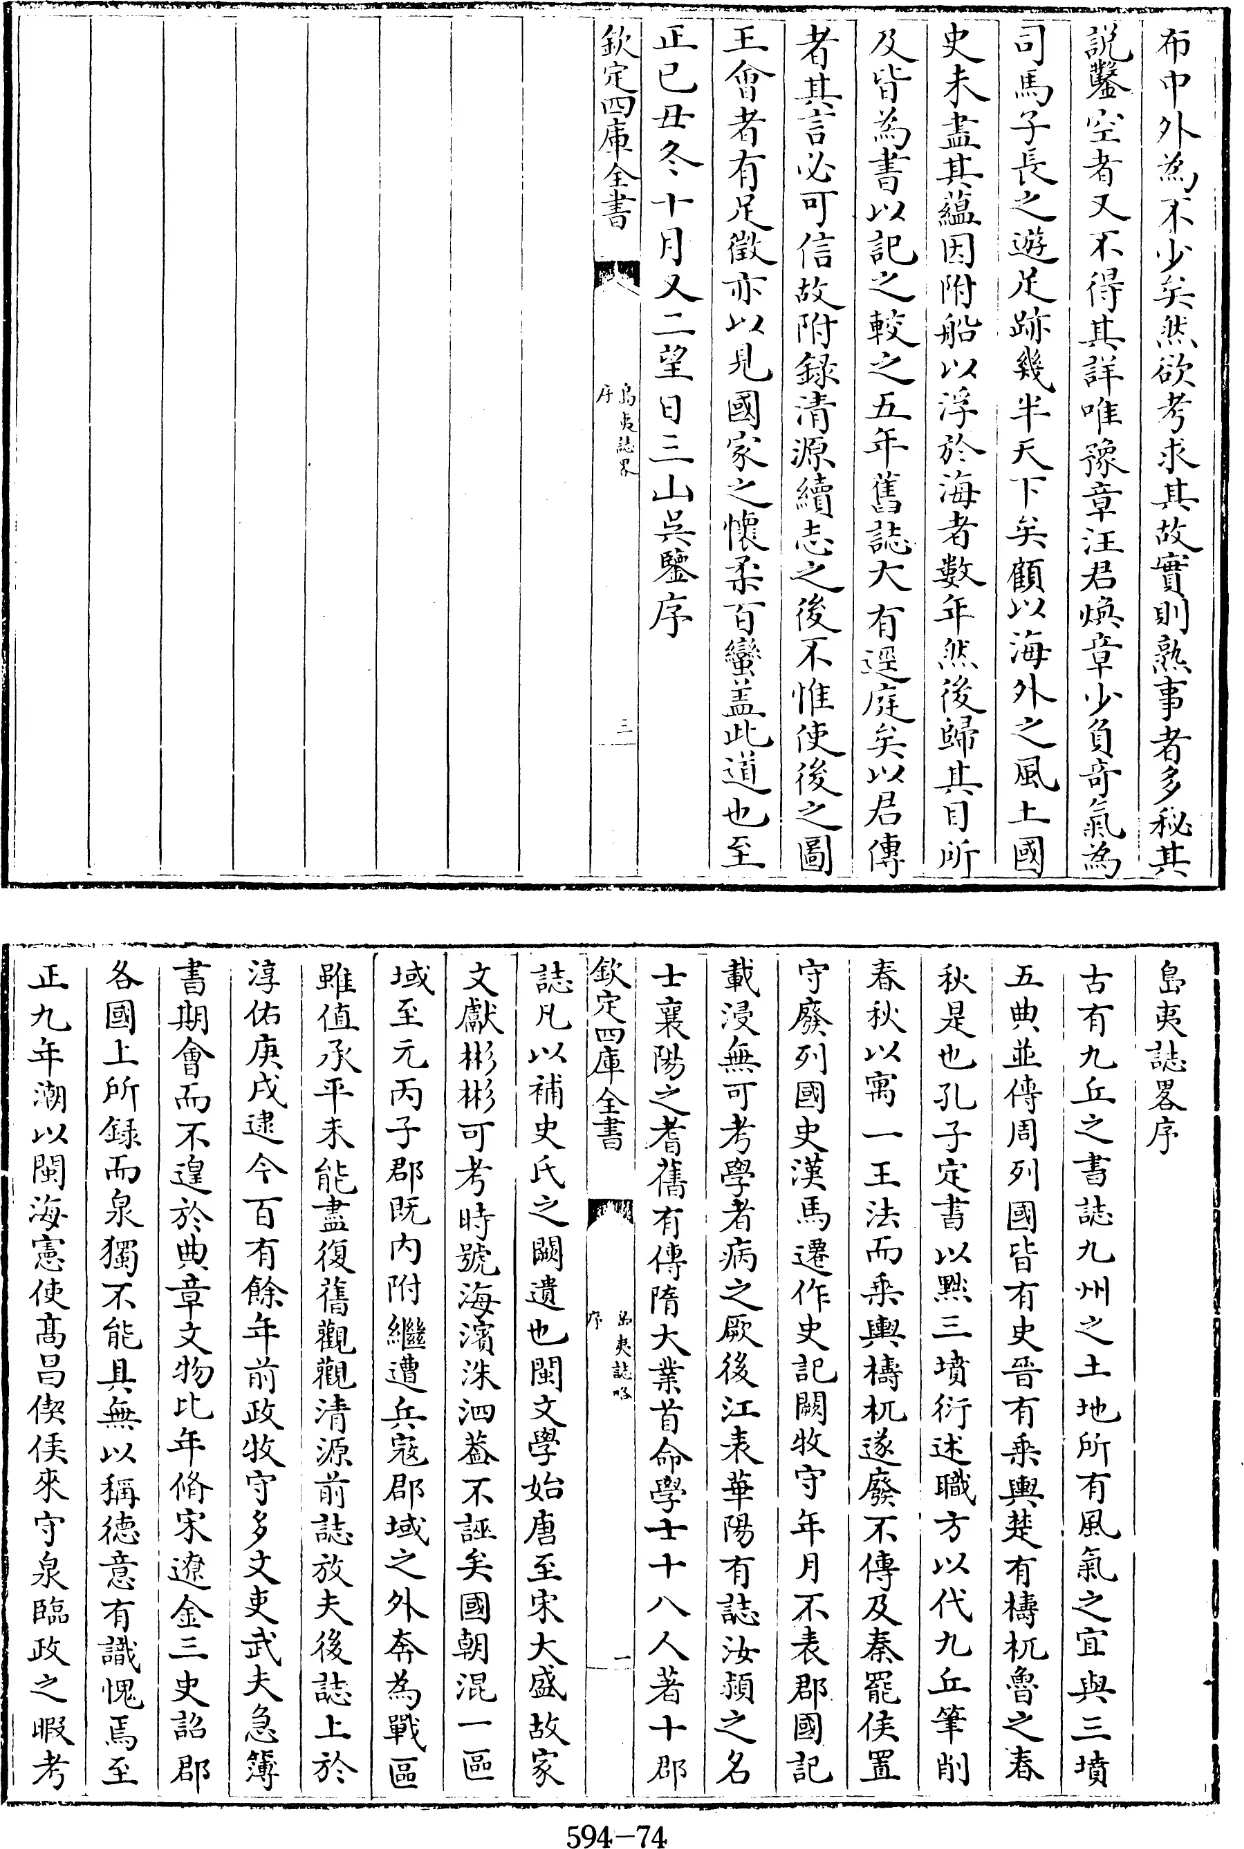 布中外為不少矣然欲考求其故實則熟事者多秘其
說鑿空者又不得其詳唯豫章汪君煥章少負奇氣為
司馬子長之遊足跡幾半天下矣顧以海外之風土國
史未盡其蘊因附船以浮於海者數年然後歸其目所
及皆為書以記之較之五年舊誌大有逕庭矣以君傳
者其言必可信故附録清源續志之後不惟使後之圖
王會者有足徵亦以見國家之懷柔百蠻盖此道也至
正已丑冬十月又二望日三山吳鑒序
欽定四庫全書
島夷誌畧
序
三
島夷誌畧序
古有九丘之書誌九州之土地所有風氣之宜與三墳
五典並傳周列國皆有史晉有乗輿楚有檮杌魯之春
秋是也孔子定書以黜三墳衍述職方以代九丘筆削
春秋以寓一王法而乗輿檮杌遂廢不傳及秦罷侯置
守廢列國史漢馬遷作史記闕牧守年月不表郡國記
載浸無可考學者病之厥後江表華陽有誌汝潁之名
士襄陽之耆舊有傳隋大業首命學士十八人著十郡
欽定四庫全書
島夷誌略
序
一
誌凡以補史氏之闕遺也閩文學始唐至宋大盛故家
文獻彬彬可考時號海濱洙泗葢不誣矣國朝混一區
域至元丙子郡既内附繼遭兵寇郡域之外奔為戰區
雖值承平未能盡復舊觀觀清源前誌放夫後誌上於
淳佑庚戌逮今百有餘年前政牧守多文吏武夫急簿
書期會而不遑於典章文物比年脩宋遼金三史詔郡
各國上所録而泉獨不能具無以稱德意有識愧焉至
正九年潮以閩海憲使髙昌偰侯來守泉臨政之暇考
594-74